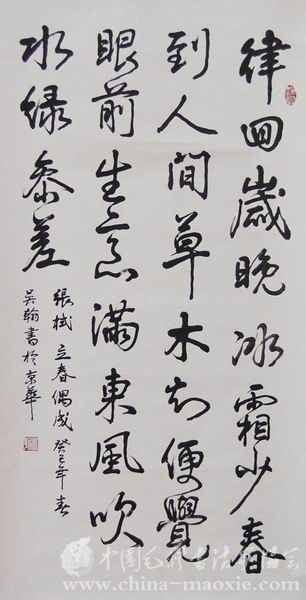 律回歲晚冰霜少春
到人間草木知便覺
眼前生意滿東風吹
水绿參差
張栻立春偶成 癸巳年春
吴翰書於京華
www.china-maoxie.com